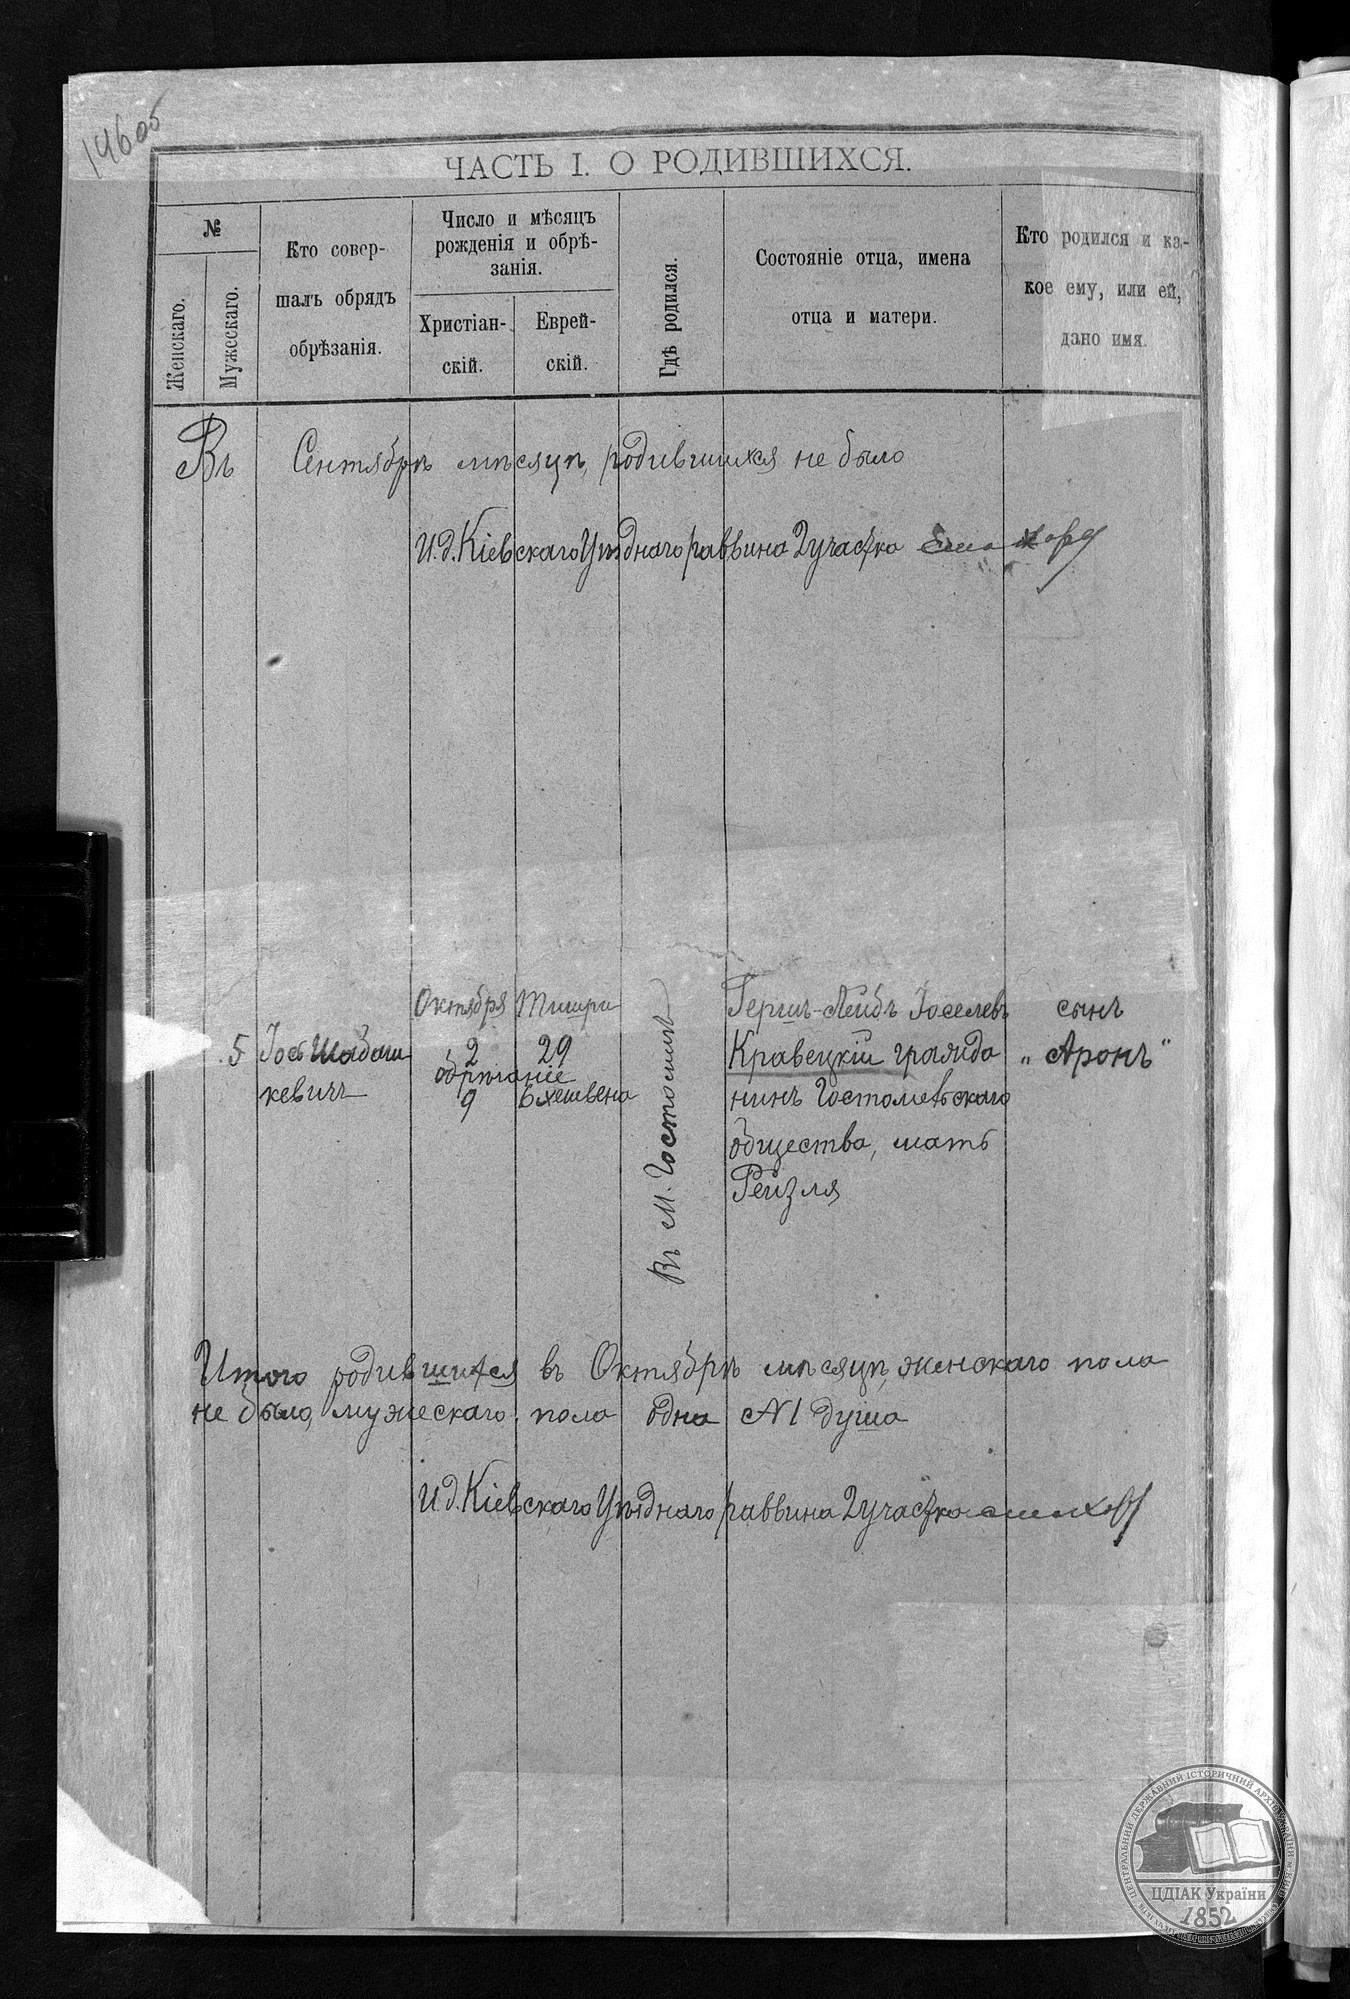 146об
ЧАСТЬ I. О РОДИВШИХСЯ.
№
Женскаго.
Мужескаго.
Кто совер-
шалъ обрядъ
обрѣзанія.
Число и мѣсяцъ
рожденія и обрѣ-
занія.
Христіан-
скій.
Еврей-
скій.
Гдѣ родился.
Состояніе отца, имена
отца и матери.
Кто родился и ка-
кое ему, или ей,
дано имя.
Въ Сентябрѣ мѣсяцѣ родившихся не было
И.д. Кіевскаго Уѣзднаго раввина 2 участка
5
Іось Шабаш
кевичъ
Октября
2
обрѣзаніе
9
Тишри
29
6 хешвена
Въ М. Гостомлѣ
Гершъ-Лейбъ Іоселевъ
Кравецкій гражда
нинъ Гостомельскаго
общества, мать
Рейзля
сынъ
„Аронъ"
Итого родившихся въ Октябрѣ мѣсяцѣ, женскаго пола
не было, мужескаго пола одна № 1 душа
И.д. Кіевскаго Уѣзднаго раввина 2 участка
ЦЕНТРАЛЬНИЙ ДЕРЖАВНИЙ ІСТОРИЧНИЙ АРХІВ УКРАЇНИ
ЦДІАК України
1852